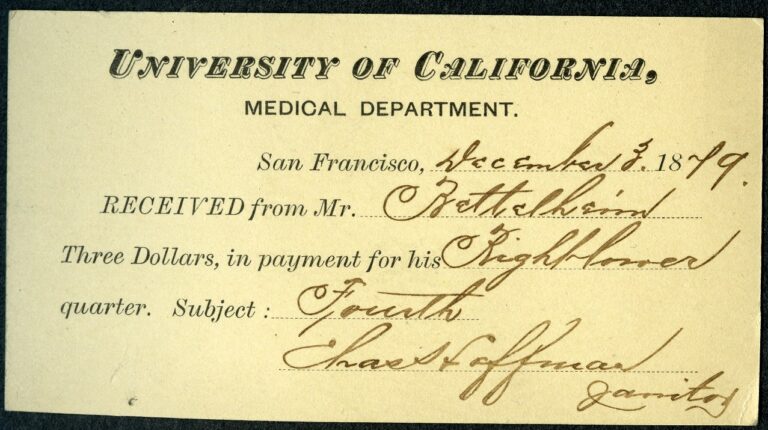 UNIVERSITY OF CALIFORNIA,
MEDICAL DEPARTMENT.
San Francisco, December 3. 1879.
RECEIVED from Mr. Bettelheim
Three Dollars, in payment for his Right lower
quarter. Subject: Fourth
Chas Hoffman
Janitor